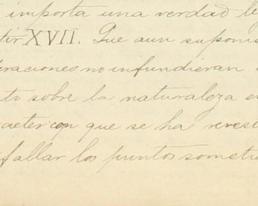 importa una verdad le
XVII. Que aun suponie
raciones no infundieran
sobre la naturaleza e
que se ha reves
fallar los puntos somet